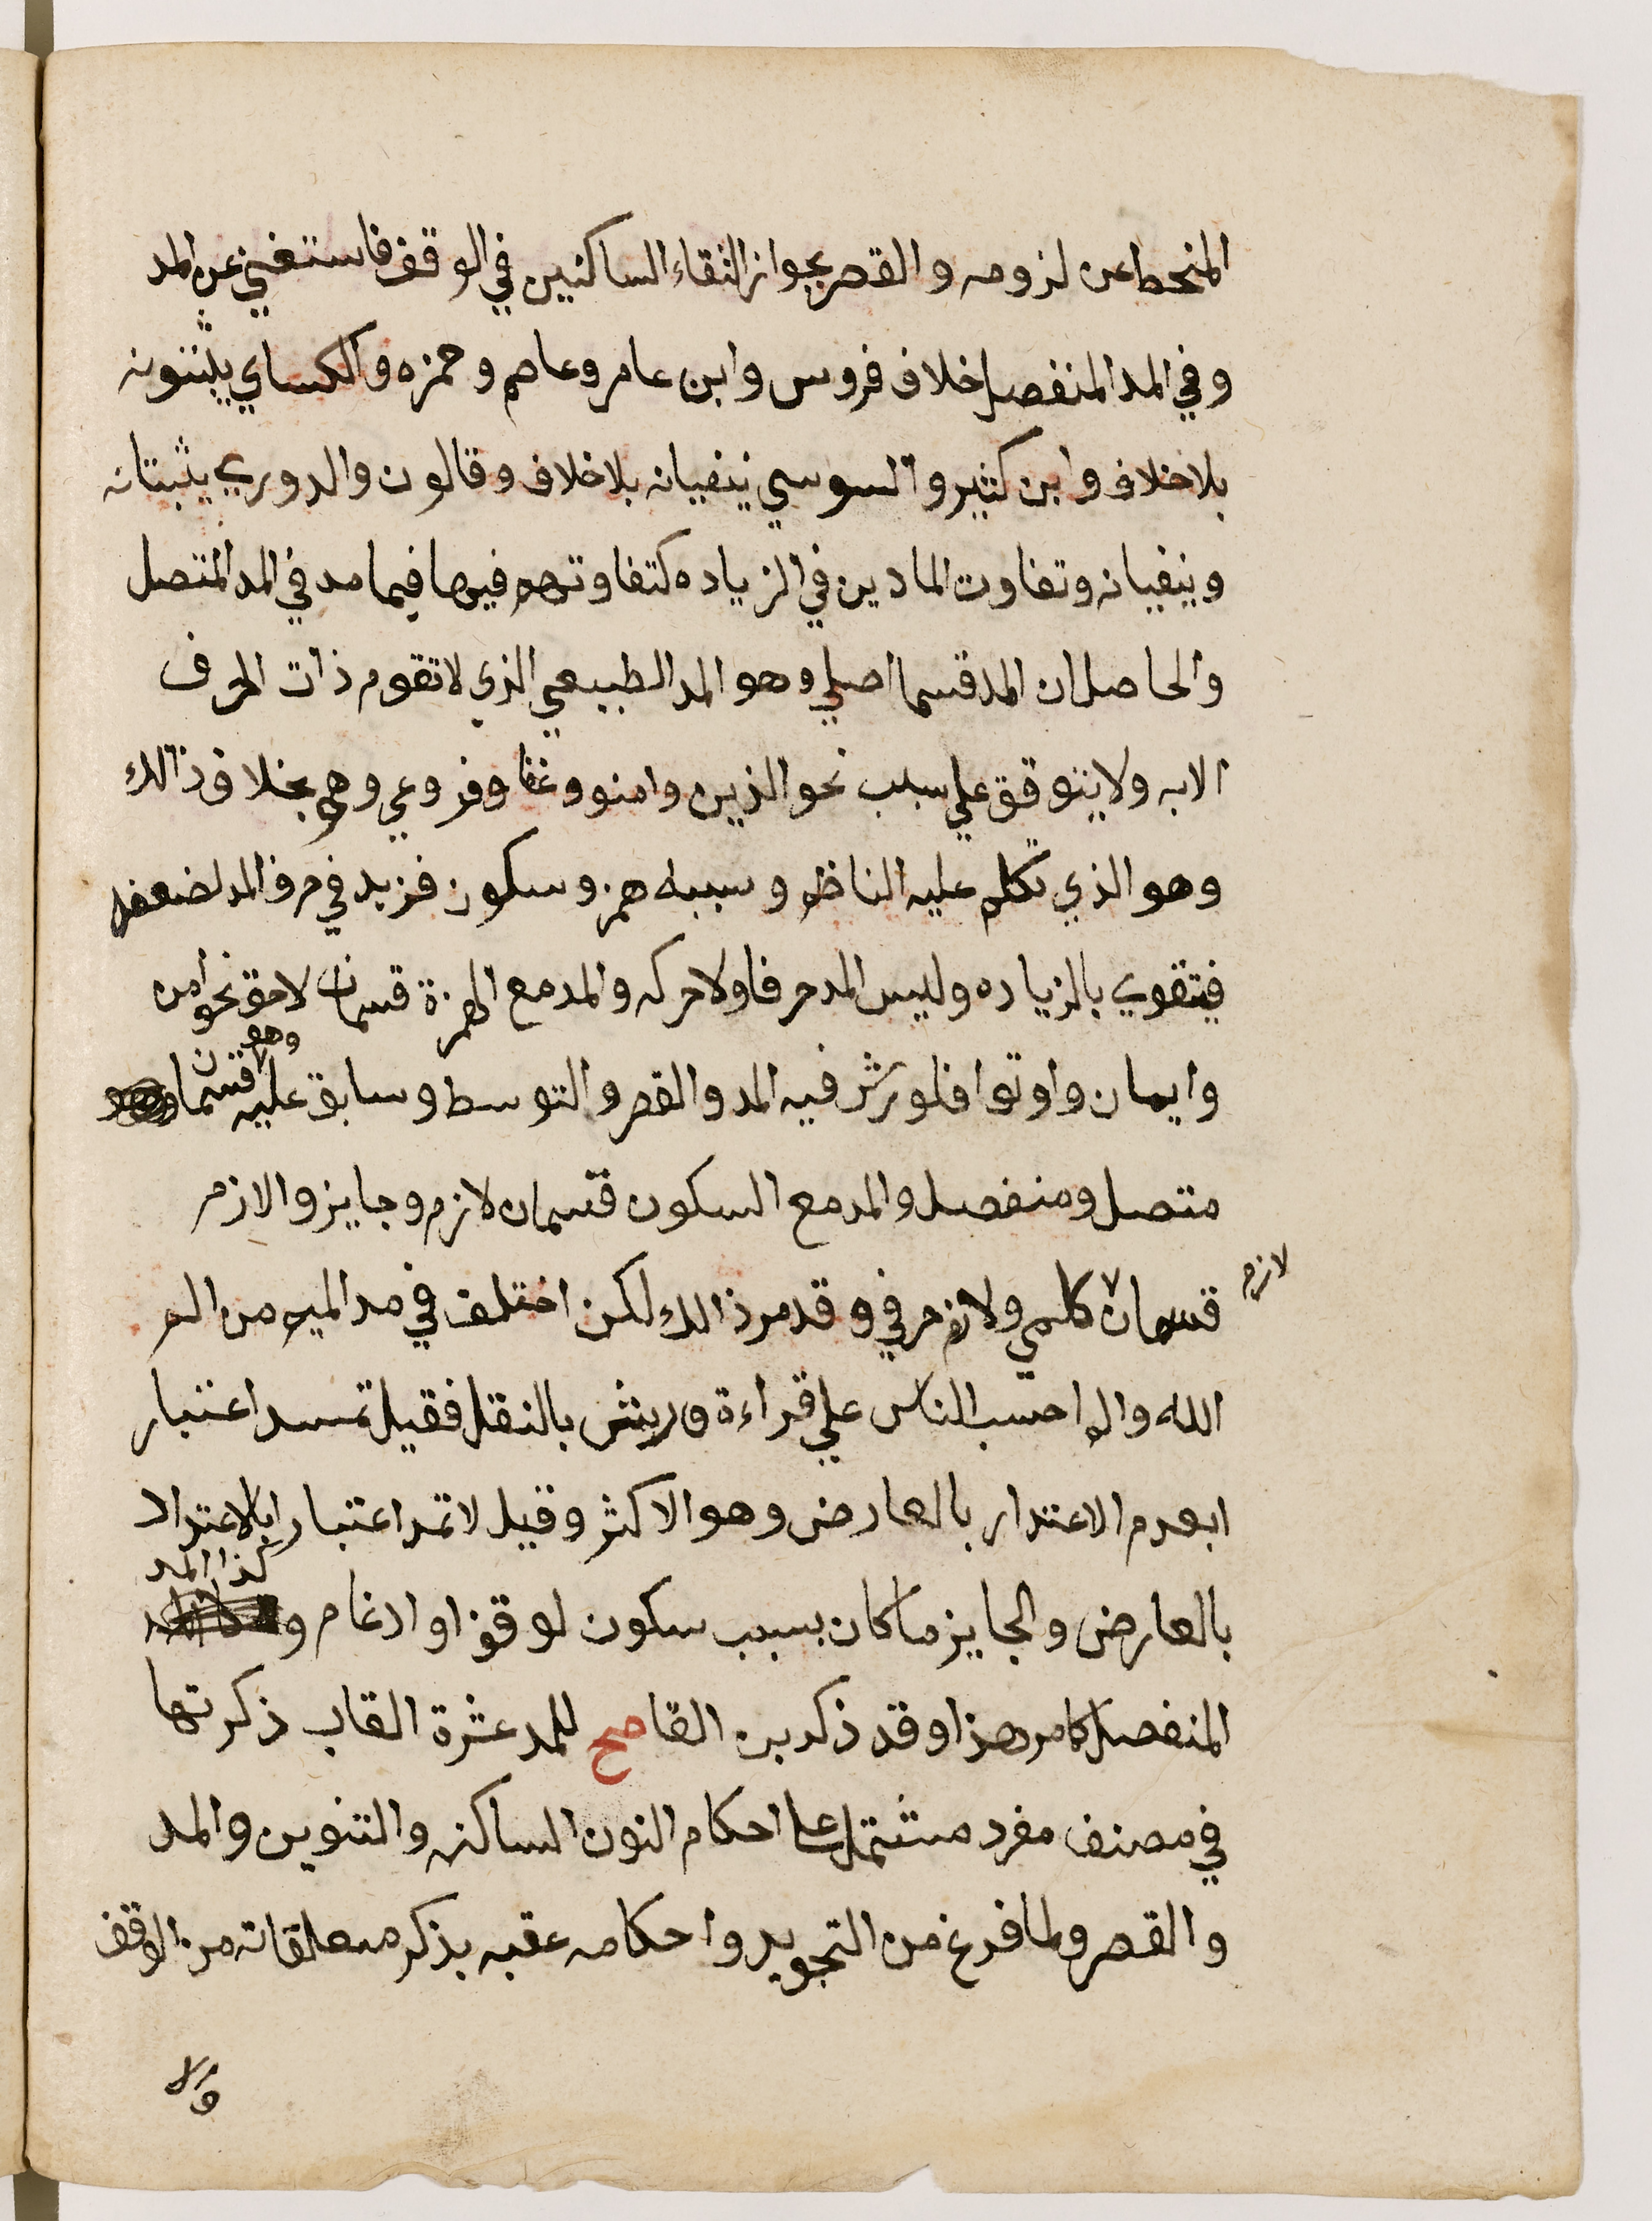 المنحط عن لزومه والقصر بجواز التقاء الساكنين في الوقف فاستغني عن المد
وفي المد المنفصل خلاف فروس وابن عامر وعاصم وحمزه والكساي يثبتونه
بلا خلاف وابن كثير والسوسي ينفيانه بلا خلاف وقالون والدوري يثبتانه
وينفيانه وتفاوت المادين في الزياده كتفاوتهم فيها فيما مد في المد المتصل
والحاصل ان المد قسما اصلي وهو المد الطبيعي الذي لا تقوم ذات الحرف
الابه ولا يتوقف علي سبب نحو الذين وامنوا وعفا وفروعي وهي بخلاف ذالك
وهو الذي تكلم عليه الناظم وسببه همز وسكون فزيد في حرف المد لضعفه
فيتقوي بالزياده وليس المد حرفا ولا حركه والمد مع الهمزة قسمان لاحق نحو امن
وايمان واوتوا فلورش فيه المد والقصر والتوسط وسابق عليه وهو قسمان
متصل ومنفصل والمد مع السكون قسمان لازم وجايز والازم
لازم
قسمان كلمي ولازم حرفي وقد مر ذالك لكن اختلف في مد الميم من الم
الله والم احسب الناس علي قراءة ورش بالنقل فقيل تمد اعتبار
ابعدم الاعتدار بالعارض وهو الاكثر وقيل لا تمد اعتبار ابالاعتداد
بالعارض والجايز ما كان بسبب سكون لوقف او ادغام وكذا المد
المنفصل كما مر هذا وقد ذكر بن القاصح للمد عشرة القاب ذكرتها
في مصنف مفرد مشتمل علي احكام النون الساكنه والتنوين والمد
والقصر ولما فرغ من التجويد واحكامه عقبه بذكر متعلقاته من الوقف